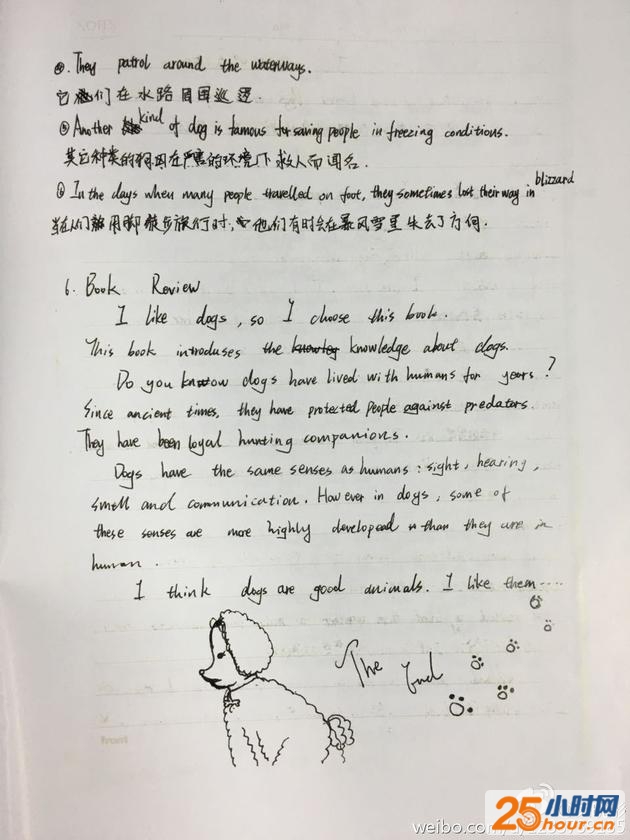 ④. They patrol around the waterways.
它们在水路周围巡逻.
⑤ Another kind of dog is famous for saving people in freezing conditions.
其它种类的狗因在严寒的环境下救人而闻名.
⑥ In the days when many people travelled on foot, they sometimes lost their way in blizzard
当在人们用脚徒步旅行时, 他们有时会在暴风雪里失去了方向.
6. Book Review
I like dogs, so I choose this book.
This book introduses the knowledge about dogs.
Do you know dogs have lived with humans for years?
Since ancient times, they have protected people against predators.
They have been loyal hunting companions.
Dogs have the same senses as humans: sight, hearing,
smell and communication. However in dogs, some of
these senses are more highly developed than they are in
human.
I think dogs are good animals. I like them.....
The End
front
weibo.com/
25小时网
25hour.cn